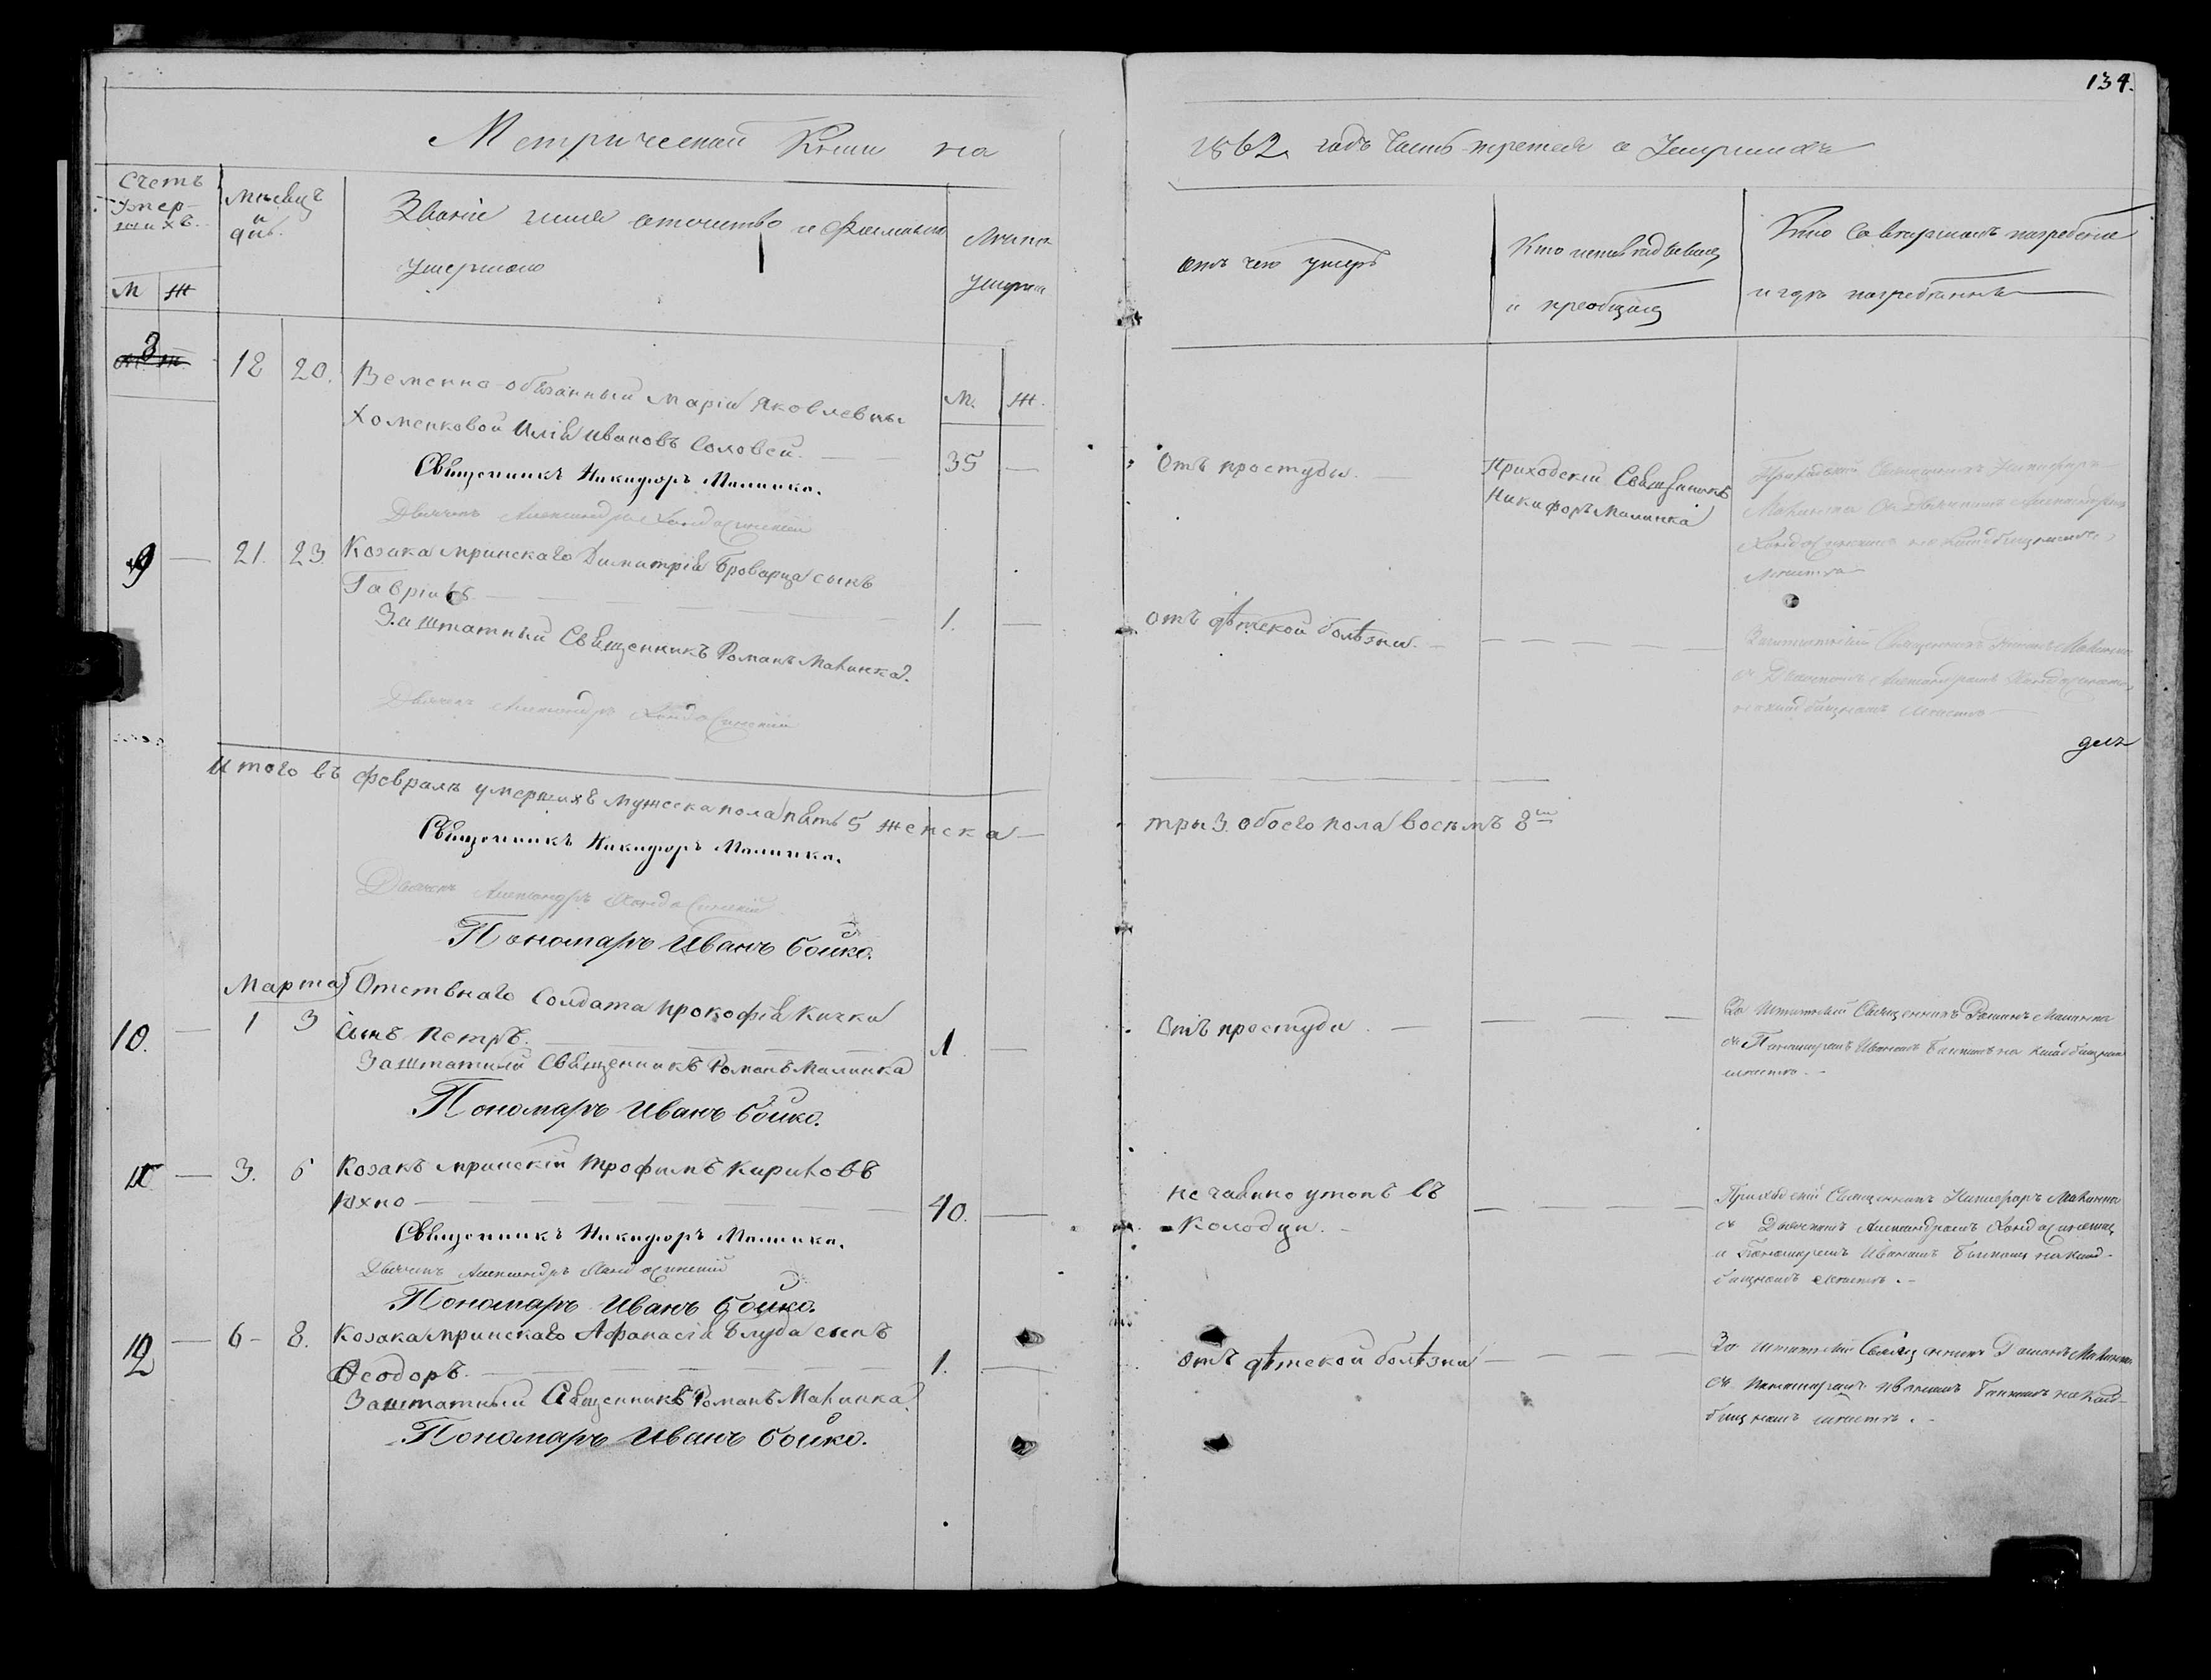 134.
Метрической Книги на
1862 годъ Часть третья о Умершихъ
Счетъ
Умер-
шихъ.
М Ж
Мѣсяцъ
и
дни.
Званіе имя отчество и фамилія
умершаго
Лѣта
умерш
М. Ж.
отъ чего умеръ
Кто исповѣдывалъ
и преобщалъ
Кто Совершалъ погребеніе
и гдѣ погребенны
8
18 20. Вемѣнно-обязанный Маріи Яковлевны
Хоменковой Илія Ивановъ Соловей.
35
Отъ простуды.
Приходскій Священикъ
Никифоръ Малинка
Приходскій Священникъ Никифоръ
Малинка съ Дьячкомъ Александромъ
на кладбищномъ
мѣстѣ
Священникъ Никифоръ Малинка.
Дьячекъ Александръ
9 — 21. 23. Козака мринскаго Димитрія Броварца сынъ
Гавріилъ
1.
отъ дѣтской болѣзни.
Заштатный Священникъ Романъ Малинка.
Дьячекъ Александръ
Заштатный Священникъ Романъ Малинка
съ Дьячкомъ Александромъ
на кладбищномъ мѣстѣ
Итого въ февралѣ умершихъ мужеска пола пять 5 женска
тры 3. обоего пола восемъ 8
Священникъ Никифоръ Малинка.
Дьячекъ Александръ
Пономарь Иванъ Бойко.
Марта
10. — 1 3 Отставнаго Солдата Прокофія Кички
Сынъ Петръ.
1
Отъ простуди.
Заштатный Священникъ Романъ Малинка
Пономарь Иванъ Бойко.
За Штатный Священникъ Романъ Малинка
съ Пономаремъ Иваномъ Бойкомъ на кладбищном
мѣстѣ.
11 — 3. 5 Козакъ мринскій Трофимъ Кириловъ
Юхно
40.
не чаянно утопъ въ
Колодци.
Священникъ Никифоръ Малинка.
Дьячекъ Александръ
Пономарь Иванъ Бойко.
Приходскій Священникъ Никифоръ Малинка
съ Дьячкомъ Александромъ
и Пономаремъ Иваномъ Бойкомъ на клад-
бищномъ мѣстѣ.
12 — 6 - 8. Козака мринскаго Афанасія Блуда сынъ
Ѳеодоръ.
1.
отъ дѣтской болѣзни
Заштатный Священникъ Романъ Малинка.
Пономарь Иванъ Бойко.
За Штатный Священникъ Романъ Малинка
съ Пономаремъ Иваномъ Бойкомъ на клад-
бищномъ мѣстѣ.